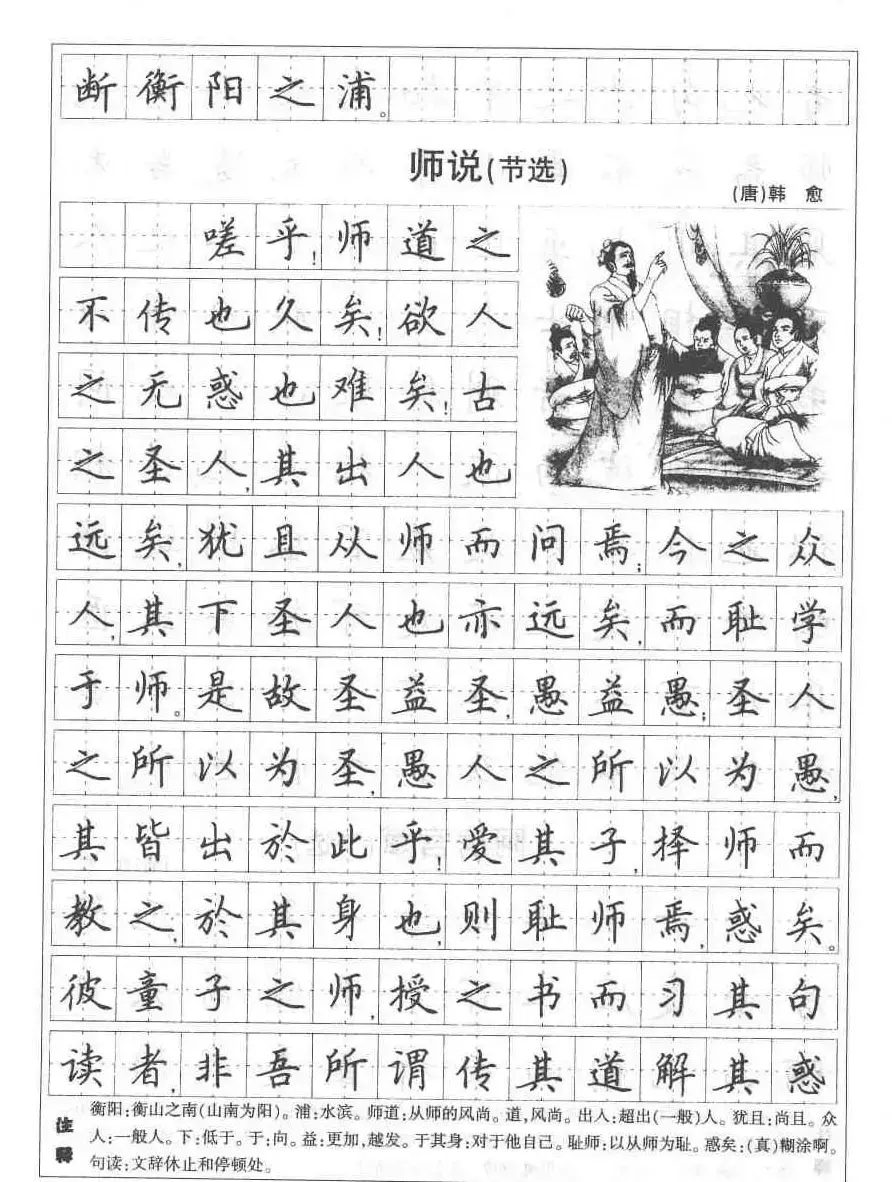 断衡阳之浦。
师说(节选)
(唐)韩 愈
嗟乎!师道之
不传也久矣!欲人
之无惑也难矣!古
之圣人,其出人也
远矣,犹且从师而问焉;今之众
人,其下圣人也亦远矣,而耻学
于师。是故圣益圣,愚益愚;圣人
之所以为圣,愚人之所以为愚,
其皆出於此乎!爱其子,择师而
教之,於其身也,则耻师焉,惑矣。
彼童子之师,授之书而习其句
读者,非吾所谓传其道解其惑
注释
衡阳:衡山之南(山南为阳)。浦:水滨。师道:从师的风尚。道,风尚。出人:超出(一般)人。犹且:尚且。众
人:一般人。下:低于。于:向。益:更加,越发。于其身:对于他自己。耻师:以从师为耻。惑矣:(真)糊涂啊。
句读:文辞休止和停顿处。